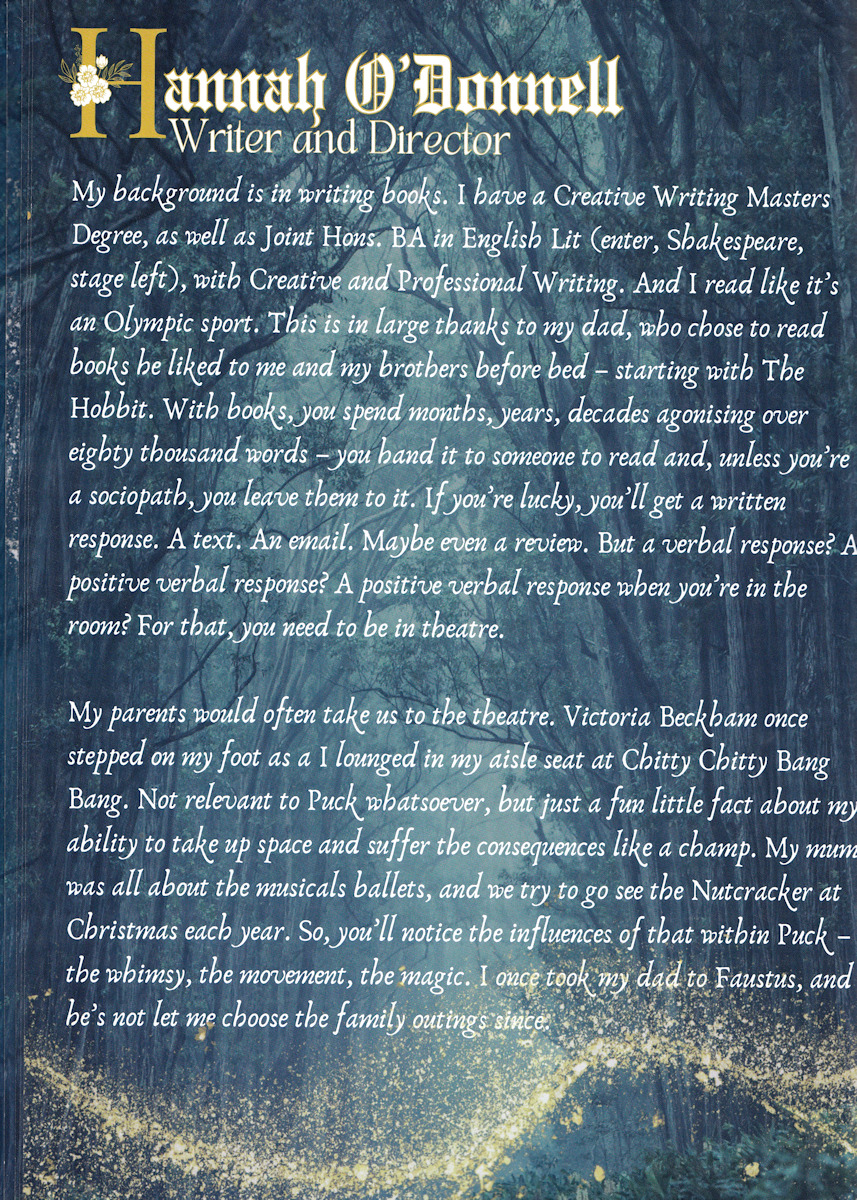 Hannah O'Donnell
Writer and Director
My background is in writing books. I have a Creative Writing Masters
Degree, as well as Joint Hons. BA in English Lit (enter, Shakespeare,
stage left), with Creative and Professional Writing. And I read like it's
an Olympic sport. This is in large thanks to my dad, who chose to read
books he liked to me and my brothers before bed – starting with The
Hobbit. With books, you spend months, years, decades agonising over
eighty thousand words – you hand it to someone to read and, unless you're
a sociopath, you leave them to it. If you're lucky, you'll get a written
response. A text. An email. Maybe even a review. But a verbal response? A
positive verbal response? A positive verbal response when you're in the
room? For that, you need to be in theatre.
My parents would often take us to the theatre. Victoria Beckham once
stepped on my foot as a I lounged in my aisle seat at Chitty Chitty Bang
Bang. Not relevant to Puck whatsoever, but just a fun little fact about my
ability to take up space and suffer the consequences like a champ. My mum
was all about the musicals ballets, and we try to go see the Nutcracker at
Christmas each year. So, you'll notice the influences of that within Puck –
the whimsy, the movement, the magic. I once took my dad to Faustus, and
he's not let me choose the family outings since.